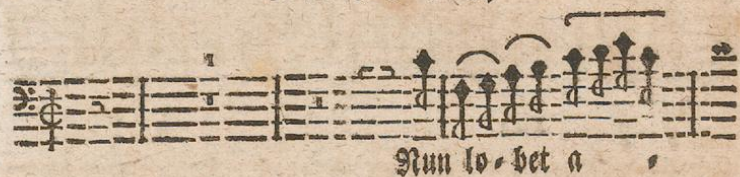 Nun lo-bet a -